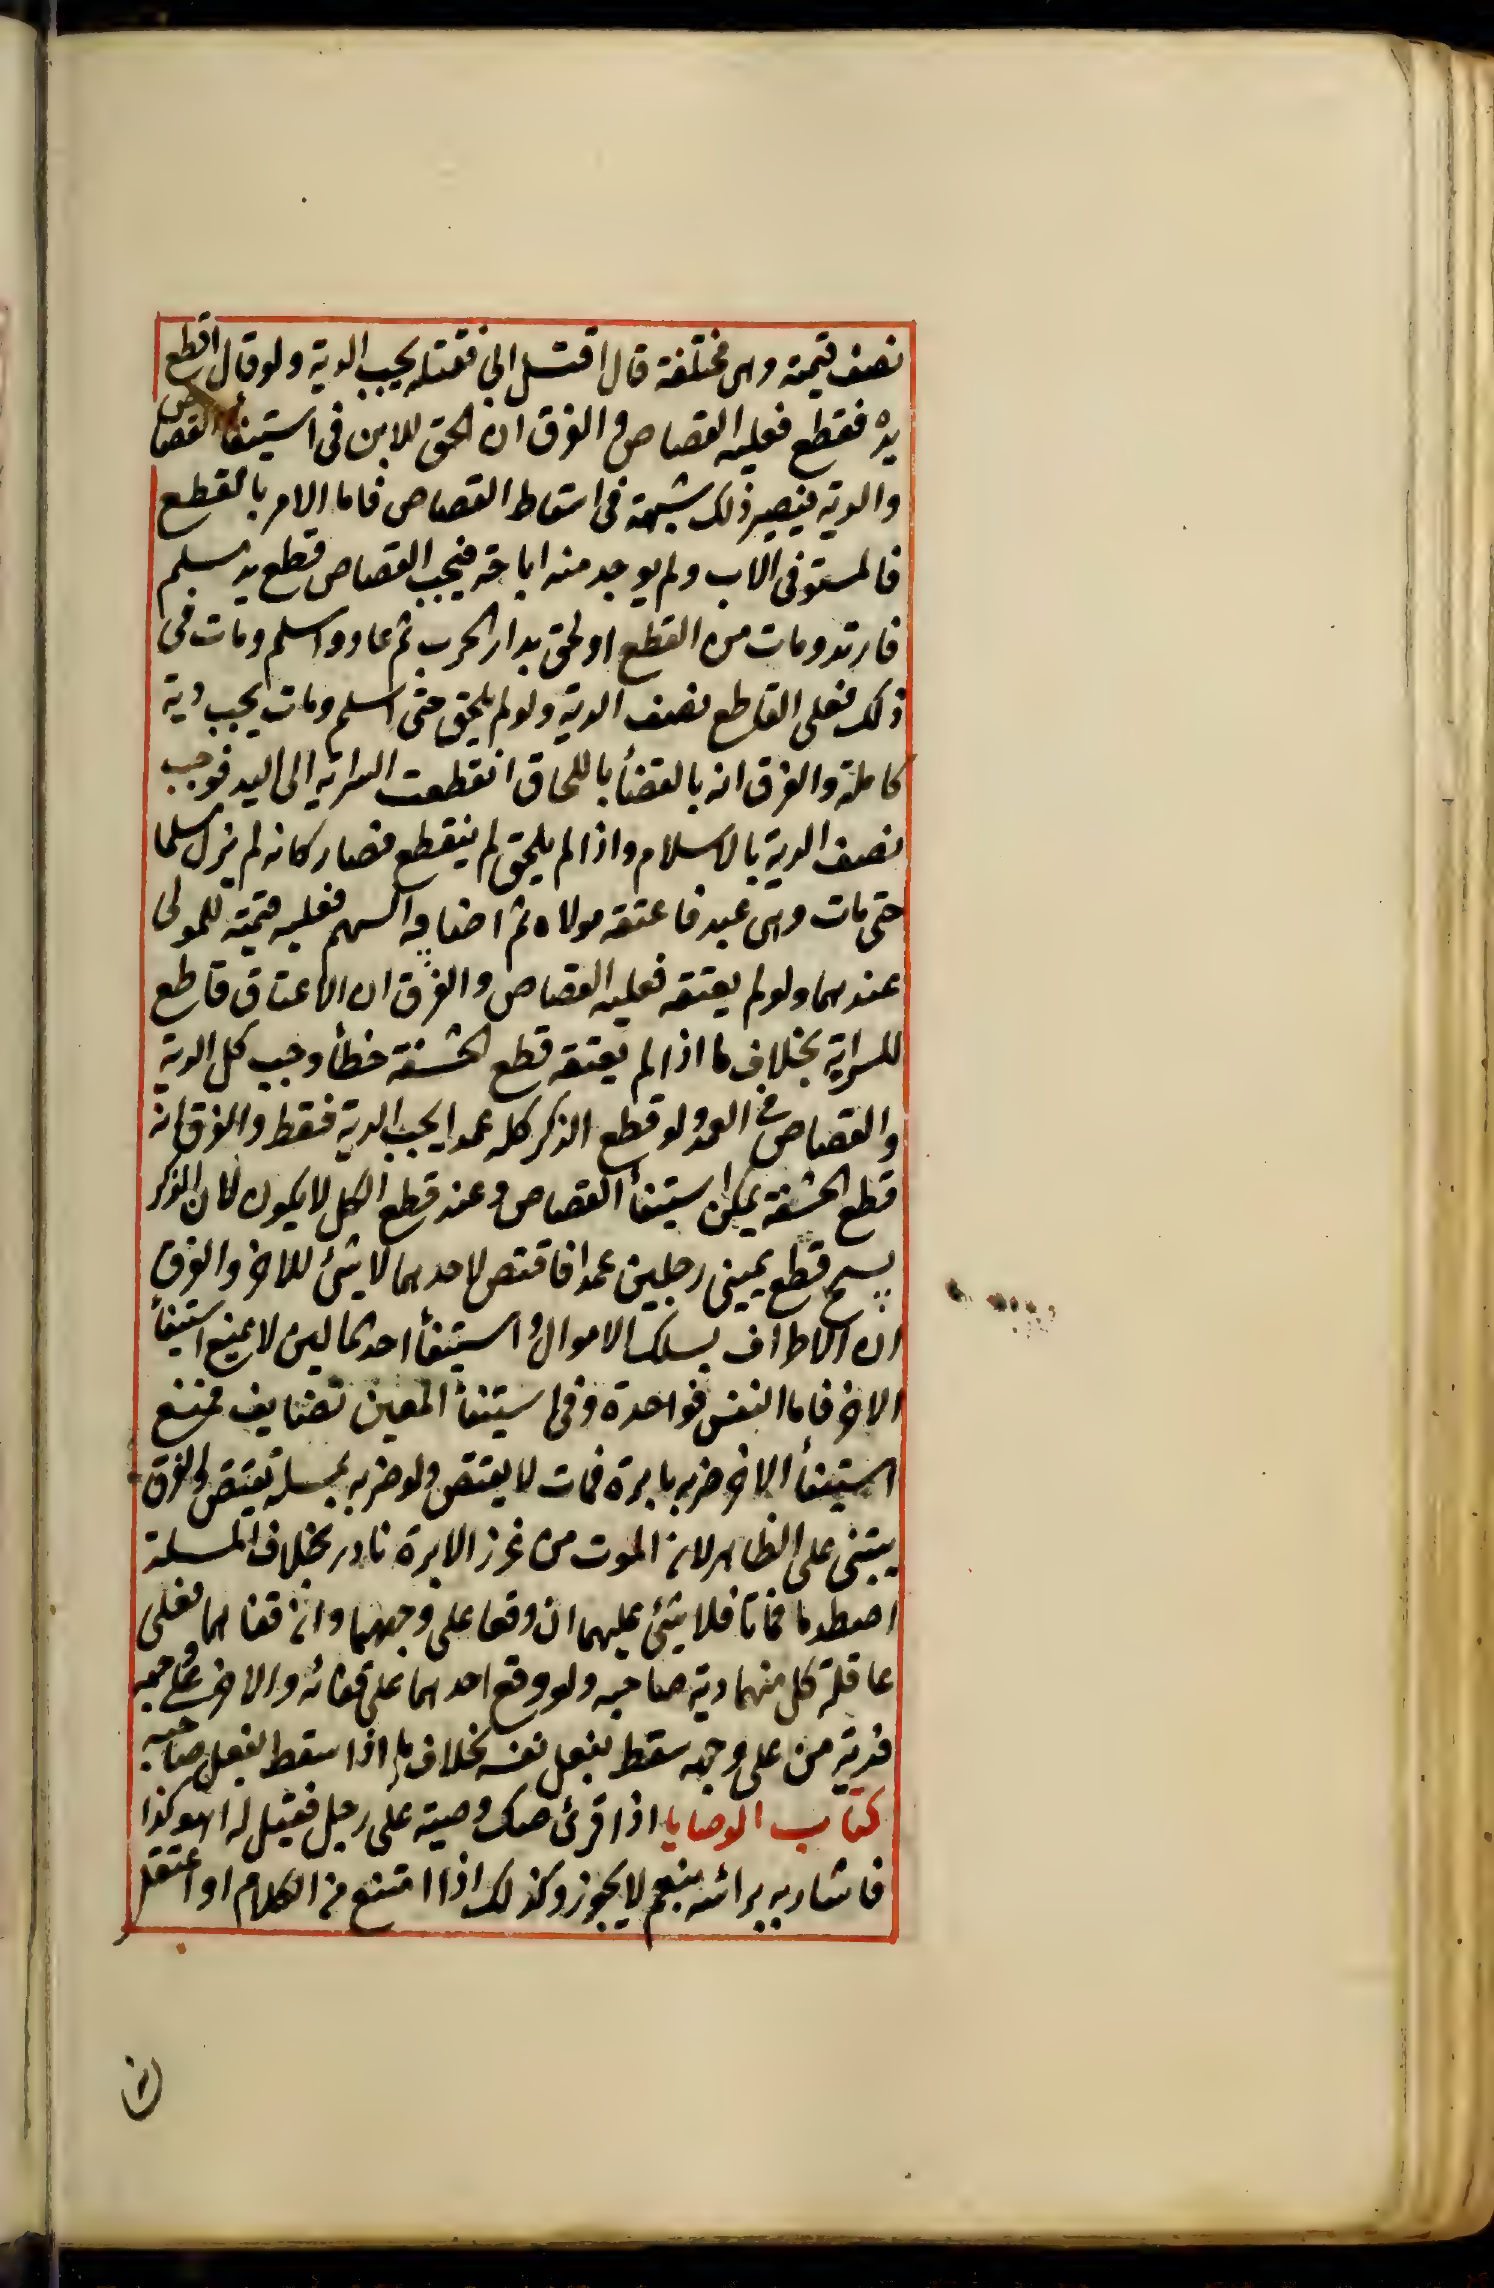 نصف قيمته وهى مختلفة قال اقتل ابى فقتله يجب الدية ولو قال اقطع
يده فقطع فعليه القصاص والفرق ان الحق للابن فى استيفأ القصاص
والدية فيصير ذلك شبهة فى اسقاط القصاص فاما الامر بالقطع
فالمستوفى الاب ولم يوجد منه اباحة فيجب القصاص قطع يد مسلم
فارتد ومات من القطع او لحق بدار الحرب ثم عاد واسلم ومات فى
ذلك فعلى القاطع نصف الدية ولو لم يلحق حتى اسلم ومات يجب دية
كاملة والفرق انه بالقضأ باللحاق انقطعت السراية الى اليد فوجب
نصف الدية بالاسلام واذا لم يلحق لم ينقطع فصار كانه لم يزل مسلما
حتى مات رمى عبد فاعتقه مولاه ثم اصابه السهم فعليه قيمته للمولى
عندهما ولو لم يعتقه فعليه القصاص والفرق ان الاعتاق قاطع
للسراية بخلاف ما اذا لم يعتقه قطع الحشفة خطأ وجب كل الدية
والقصاص فى العمد ولو قطع الذكر كله عمدا يجب الدية فقط والفرق انه
قطع الحشفة يمكن استيفأ القصاص وعند قطع الكل لا يكون لان الذكر
قطع يمينى رجلين عمدا فاقتص لاحدهما لا شئ للاخر والفرق
ان الاطراف يسلك الاموال واستيفأ احد المالين لا يمنع استيفأ
الاخر فاما النفس فواحدة وفى استيفأ المعين تضايف فمنع
استيفأ الاخر ضربه بابرة فمات لا يقتص ولو ضربه بمسلة يقتص والفرق
يبتنى على الظاهر لان الموت من غرز الابرة نادر بخلاف المسلة
اصطدما فماتا فلا شئ عليهما ان وقعا على وجههما وان قفاهما فعلى
عاقلة كل منهما دية صاحبه ولو وقع احدهما على قفائه والاخر على وجهه
فدية من على وجهه سقط بفعل نفسه بخلاف ما اذا سقط بفعل صاحبه
كتاب الوصايا اذا قرئ صك وصية على رجل فقيل له اهو كذا
فاشار به برائسه بنعم لا يجوز وكذلك اذا امتنع من الكلام او اعتقل